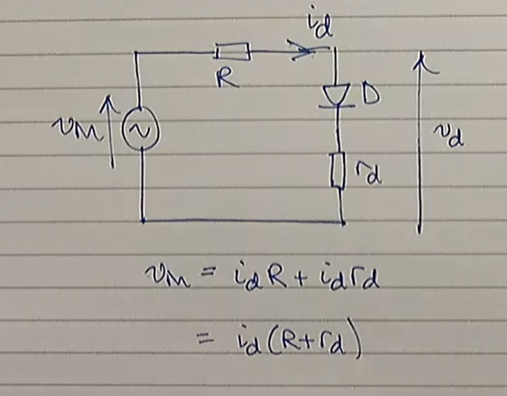 id
R
D
vM
rd
vd
vM = idR + idrd
= id(R+rd)